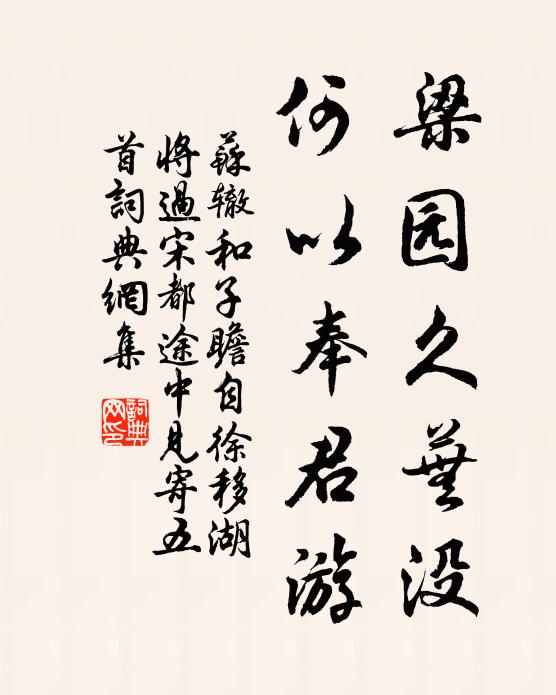 梁园久芜没
何以奉君游
蘇辙和子瞻自徐移湖
将過宋都途中見寄五
首詞典網集
詞典网印